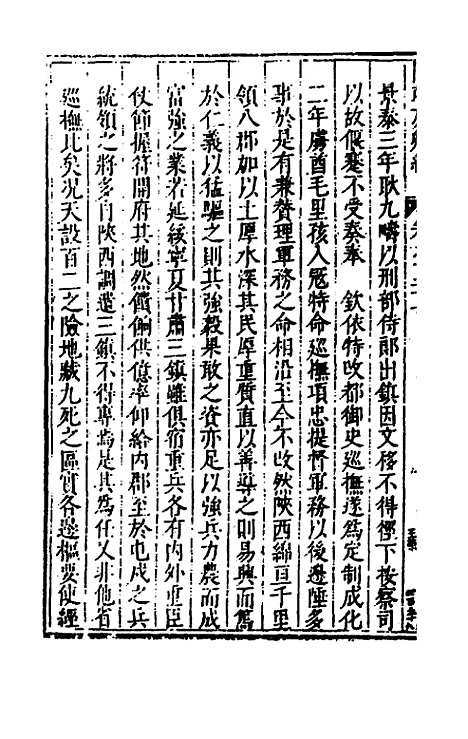 景泰三年耿九疇以刑部侍郎出鎮因文移不得徑下按察司
以故偃蹇不受奏奉　欽依特攺都御史巡撫遂爲定制成化
二年虜酋毛里孩入寇特命巡撫項忠提督軍務以後邊陲多
事於是有兼贊理軍務之命相沿至今不攺然陝西綿亘千里
領八郡加以土厚水深其民厚重質直以善導之則易興而篤
於仁義以猛驅之則其強毅果敢之資亦足以強兵力農而成
富強之業若延綏寧夏甘肅三鎮雖俱宿重兵各有内外重臣
仗節握符開府其地然餽餉供億率仰給内郡至於屯戍之兵
統領之將多自陝西調遣三鎮不得專焉是其爲任又非他省
巡撫比矣况天設百二之險地藏九死之區實各邊樞要使經